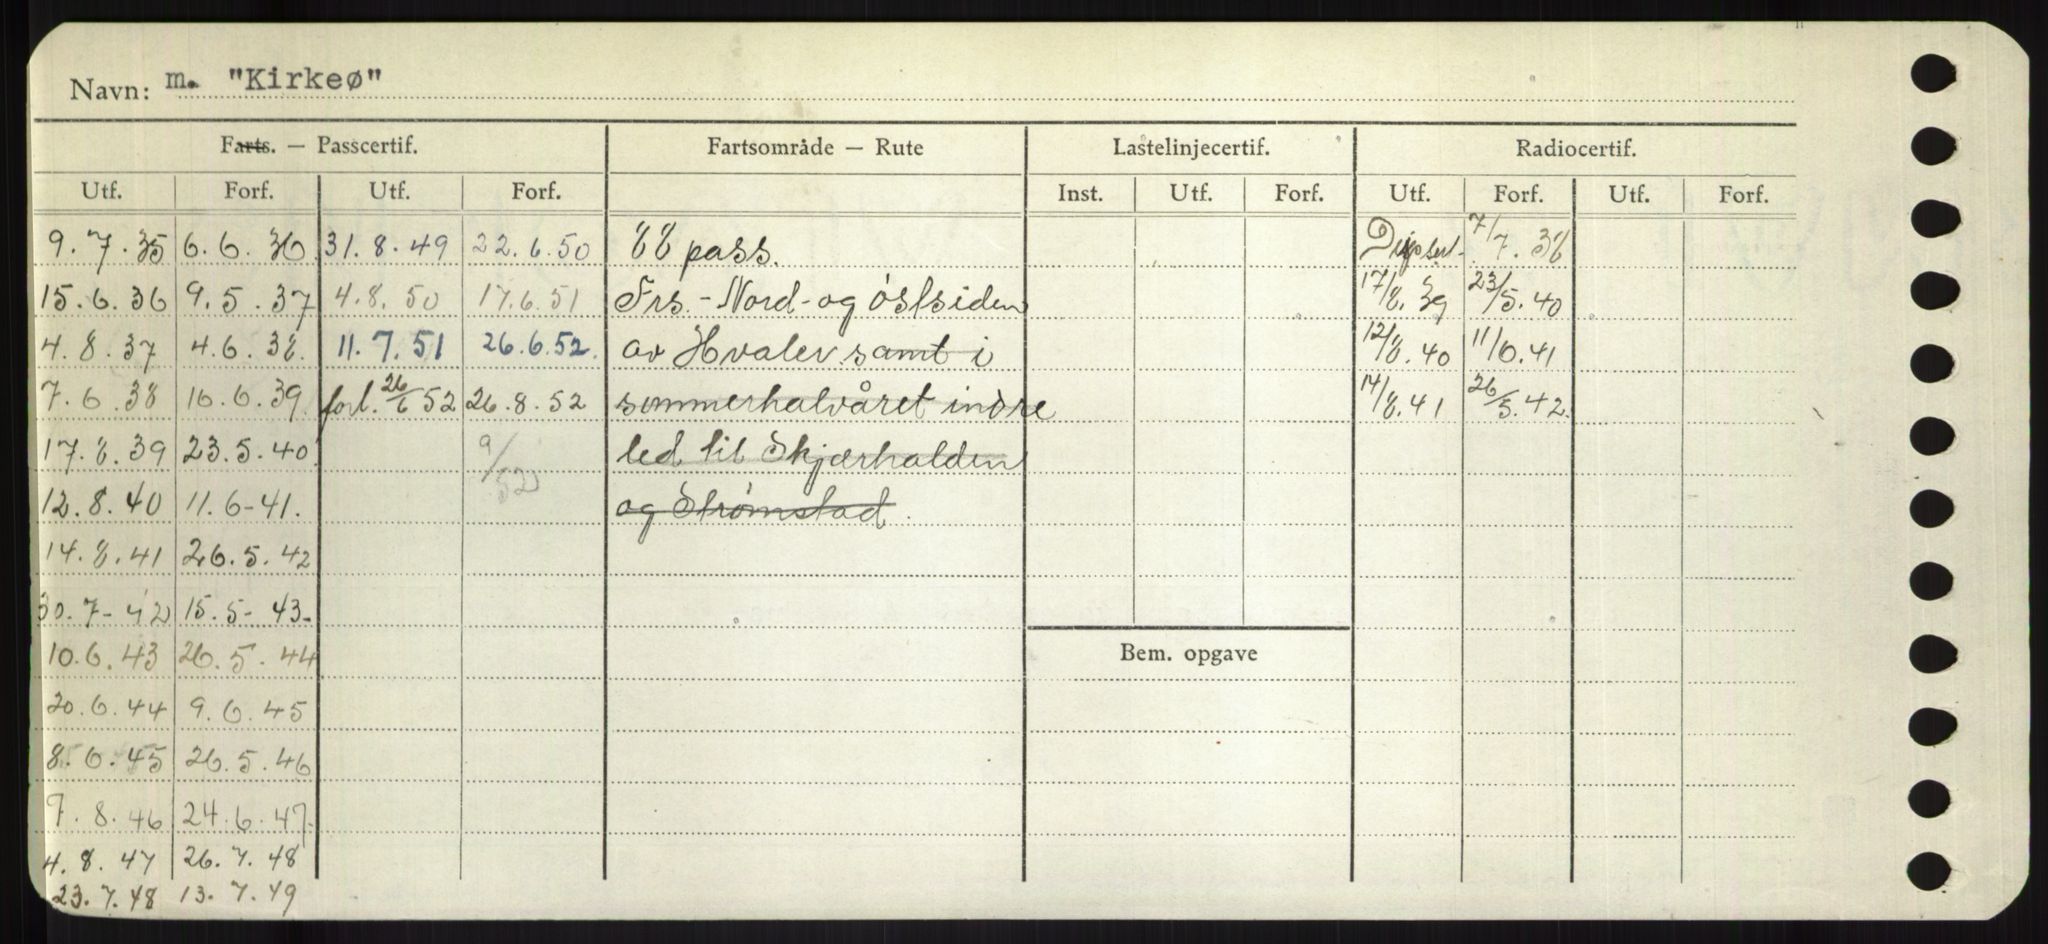 Navn: m. "Kirkeø"
Farts. — Passcertif. Fartsområde — Rute Lastelinjecertif. Radiocertif.
Utf. Forf. Utf. Forf. Inst. Utf. Forf. Utf. Forf. Utf. Forf.
9. 7. 35 6. 6. 36 31. 8. 49 22. 6. 50 88 pass. 7/7. 38
15. 6. 36 9. 5. 37 4. 8. 50 17. 6. 51 Frs. - Nord- og østsiden 17/8. 39 23/5. 40
4. 8. 37 4. 6. 38 11. 7. 51 26. 6. 52. av Hvaler samt i 12/8. 40 11/6. 41
7. 6. 38 16. 6. 39 forl. 26/6 52 26. 8. 52 sommerhalvåret indre 14/8. 41 26/5. 42.
17. 8. 39 23. 5. 40 9/52 led til Skjærhalden
12. 8. 40 11. 6 - 41. og Strømstad.
14. 8. 41 26. 5. 42
30. 7 - 42 15. 5 - 43 -
10. 6. 43 26. 5. 44
20. 6. 44 9. 6. 45
8. 6. 45 26. 5. 46
7. 8. 46 24. 6. 47.
Bem. opgave
4. 8. 47 26. 7. 48
23. 7. 48 13. 7. 49